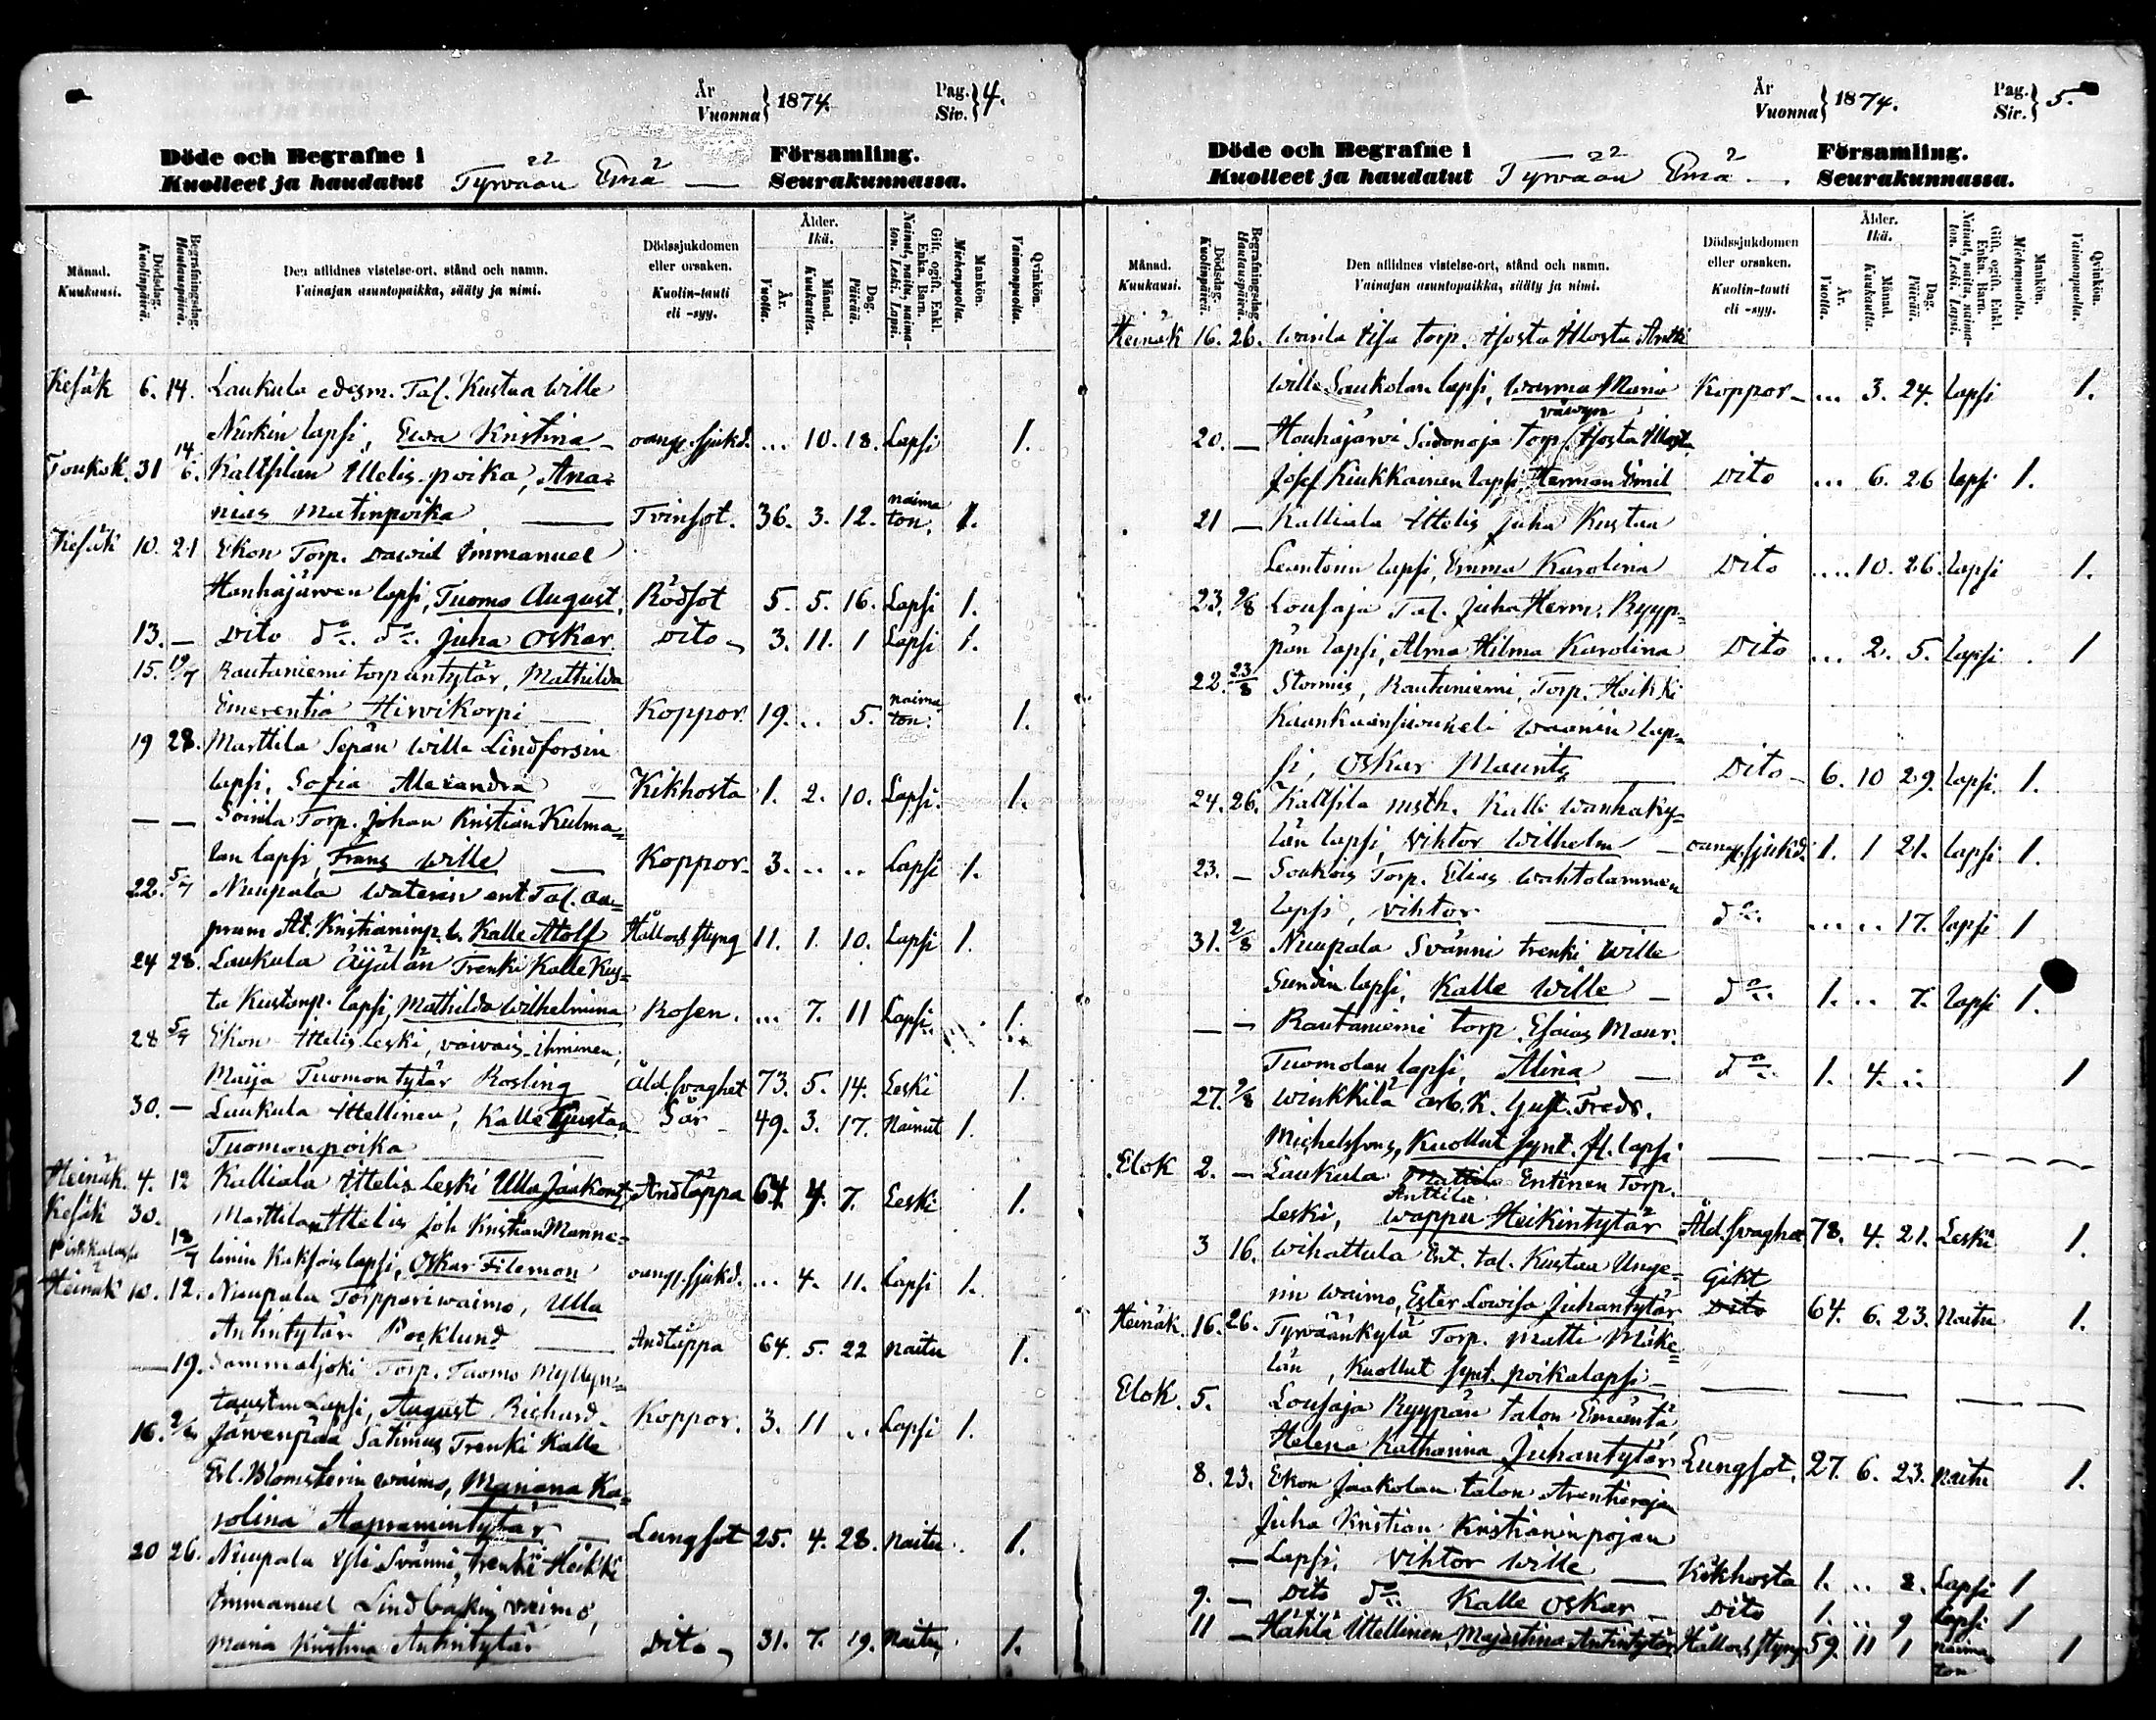 År Vuonna } 1874. Pag. Siv. } 4.
Döde och Begrafne i Församling.
Kuolleet ja haudatut Tyrvään Emä — Seurakunnassa.
Månad. Kuukausi. Dödsdag. Kuolinpäivä. Begrafningsdag. Hautauspäivä. Den aflidnes vistelse-ort, stånd och namn. Vainajan asuntopaikka, sääty ja nimi. Dödssjukdomen eller orsaken. Kuolin-tauti eli -syy. Ålder. Ikä. År. Vuotta. Månad. Kuukautta. Dag. Päivää. Gift, ogift, Enkl. Enka. Barn. Nainut, naitu, naimaton. Leski. Lapsi. Mankön. Miehenpuolia. Qvinkön. Vaimonpuolia.
Kesäk 6. 14. Laukula edesm. Tal. Kustaa Wille
Nuskin lapsi, Ewa Kristina – oang. sjukd. ... 10. 18. Lapsi 1.
Toukok. 31 14/6. Kaltsilan Ittelis poika, Ana=
nias Matinpoika — Tvinsot. 36. 3. 12. naimaton. 1.
Kesäk 10. 21 Ekon Torp. David Immanuel
Hanhajärwen lapsi, Tuomo August. Rödsot 5. 5. 16. Lapsi 1.
13. — Dito do. do. Juha Oskar. Dito 3. 11. 1 Lapsi 1.
15. 19/7 Rautaniemi torparintytär, Mathilda
Emerentia Hirvikorpi — Koppor. 19. .. 5. naimaton. 1.
19 28. Marttila Sepän Wille Lindforsin
lapsi, Sofia Alexandra — Kikhosta 1. 2. 10. Lapsi. 1.
— — Soinila Torp. Johan Kristian Kulma=
lan lapsi, Frans Wille — Koppor. 3. .. .. Lapsi 1.
22. 5/7 Nuupala Waterin ent. Tal. Aa=
pram At. Kristianinp. l. Kalle Atolf Håll och styng 11. 1. 10. Lapsi 1.
24 28. Laukula Äijälän Trenki Kalle Kus=
ta Kustanp. lapsi, Mathilda Wilhelmina Rosen. ... 7. 11 Lapsi. 1.
28 5/7 Ekon Ittelis leski, vaivais-ihminen,
Maija Tuomontytär Rosling Åld. svaghet 73. 5. 14. Leski 1.
30. — Laukula Ittellinen, Kalle Gustaa Sår 49. 3. 17. Nainut 1.
Tuomonpoika
Heinäk. 4. 12 Kalliala Ittelis Leski Ulla Jaakont. Andtäppa 64. 4. 7. Leski 1.
Kesäk 30. Marttilan Ittelis Joh Kristian Manne=
13/7 linin Kaksois lapsi, Oskar Filemon oang. sjukd. ... 4. 11. Lapsi 1.
Heinäk 10. 12. Nuupala Torppari waimo, Ulla
Antintytär Packlund — Andtäppa 64. 5. 22 Naitu 1.
— 19. Sammaljoki Torp. Tuomo Myllyn=
taustan Lapsi, August Richard. Koppor. 3. 11 .. Lapsi 1.
16. 2/8 Järvenpää Satimus Trenki Kalle
Erl. Blomsterin waimo, Mariana Ka=
rolina Aapramintytär — Lungsot 25. 4. 28. Naitu 1.
20 26. Nuupala Yli Svänni, trenki Heikki
Immanuel Lindbäkin vaimo,
Maria Kristina Antintytär Dito 31. 7. 19. Naitu, 1.
År Vuonna } 1874. Pag. Siv. } 5.
Döde och Begrafne i Församling.
Kuolleet ja haudatut Tyrvään Emä. — Seurakunnassa.
Månad. Kuukausi. Dödsdag. Kuolinpäivä. Begrafningsdag. Hautauspäivä. Den aflidnes vistelse-ort, stånd och namn. Vainajan asuntopaikka, sääty ja nimi. Dödssjukdomen eller orsaken. Kuolin-tauti eli -syy. Ålder. Ikä. År. Vuotta. Månad. Kuukautta. Dag. Päivää. Gift, ogift, Enkl. Enka. Barn. Nainut, naitu, naimaton. Leski. Lapsi. Mankön. Miehenpuolia. Qvinkön. Vaimonpuolia.
Heinäk 16. 26. Torp. Antti
Wille Laukolan lapsi, Warma Maria Koppor – ... 3. 24. lapsi 1.
vävyn
20. — Houhajärvi Sadonoja Torp.
Josef Kiukkainen lapsi, Herman Emil Dito ... 6. 26 lapsi 1.
21 — Kalliala Ittelis Juha Kustaa
Leantorin lapsi, Emma Karolina Dito .... 10. 26. lapsi 1.
23. 2/8 Lousaja Tal. Juha Herm. Ryyp=
pön lapsi, Alma Hilma Karolina Dito ... 2. 5. lapsi . 1
22. 23/8 Stormis, Rautaniemi, Torp. Heikki
waarin lap=
si, Oskar Maurits — Dito – 6. 10 29. lapsi. 1.
24. 26. Kaltsila msth. Kalle Wanhaky=
län lapsi, Viktor Wilhelm – oang. sjukd. 1. 1 21. lapsi 1.
23. — Soukois Torp. Elias Wahtolammen
lapsi, Vihtor — do. .... .. 17. lapsi 1
31. 2/8 Nuupala Svänni trenki Wille
Sundin lapsi, Kalle Wille – do. 1. .. 7. lapsi 1.
— — Rautaniemi torp. Esaias Maur.
Tuomolan lapsi, Alina — do. 1. 4. .. 1
27. 2/8 Winkkilä arb. K. Gust. Fredr.
Michelssons, Kuollut synt. fl. lapsi — — — — — —
Elok 2. — Laukula Mattila Entinen Torp.
Anttila
Leski, Wappu Heikintytär Åld. svaghet 78. 4. 21. Leski 1.
3 16. Wihattula Ent. tal. Kustaa Unge= Gikt
nin waimo, Ester Lowisa Juhantytär Dito 64. 6. 23. Naitu 1.
Heinäk. 16. 26. Tyrväänkylä Torp. Matti Mäke=
län, Kuollut synt. poikalapsi — — — —
Elok. 5. Lousaja Ryypän talon Emäntä,
Helena Katharina Juhantytär Lungsot. 27. 6. 23. naitu 1.
8. 23. Ekon Jaakolan talon Arentierajan
Juha Kristian Kristianinpojan
— Lapsi, Vihtor Wille — Kikhosta 1. .. 8. Lapsi 1
9. — Dito do. Kalle Oskar – Dito 1. .. 9 lapsi 1
11 — Häntä Ittellinen, Majastina Antintytär Håll och styng 59. 11 1 naimaton 1